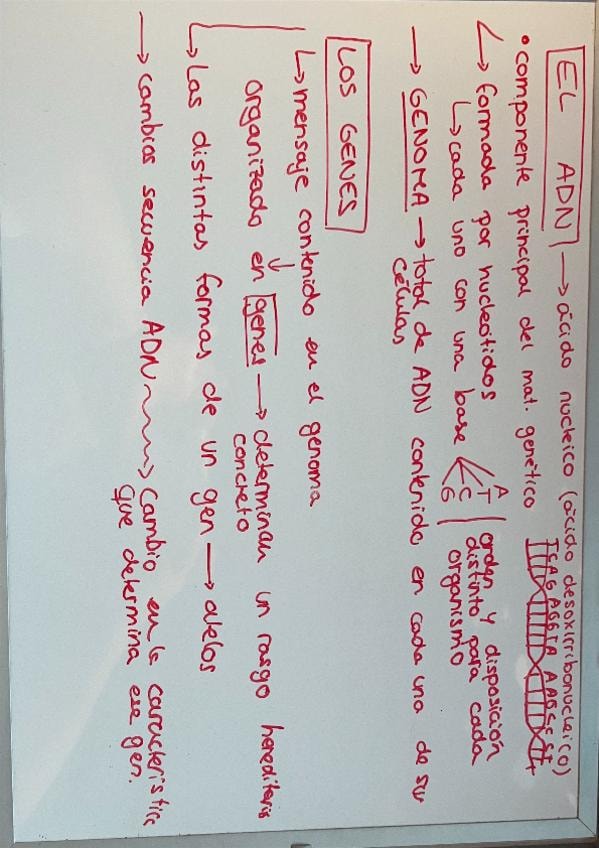 EL ADN → ácido nucleico (ácido desoxirribonucleico)
• componente principal del mat. genético
↳ formada por nucleótidos
↳ cada uno con una base A T C G
orden y disposición
distinto para cada
organismo
→ GENOMA → total de ADN contenido en cada una de su
células
LOS GENES
↳ mensaje contenido en el genoma
↓
organizado en genes → determinan un rasgo hereditario
concreto
↳ Las distintas formas de un gen → alelos
→ cambios secuencia ADN ~~~> Cambio en la característica
que determina ese gen.